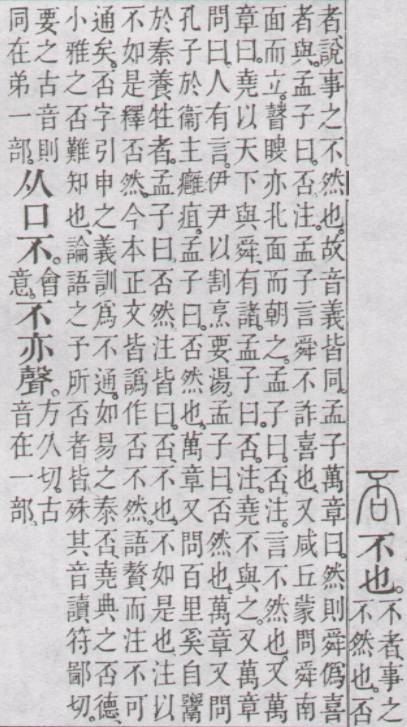 否 不也。不者事之
不然也。否
者。說事之不然也。故音義皆同。孟子萬章曰。然則舜僞喜
者與。孟子曰。否。注。孟子言舜不詐喜也。又咸丘蒙問舜南
面而立。瞽瞍亦北面而朝之。孟子曰。否。注。言不然也。又萬
章曰。堯以天下與舜。有諸。孟子曰。否。注。堯不與之。又萬章
問曰。人有言。伊尹以割烹要湯。孟子曰。否然也。萬章又問
孔子於衞主癰疽。孟子曰。否然也。萬章又問百里奚自鬻
於秦養牲者。孟子曰。否然。注皆曰。否。不也。不如是也。注以
不如是釋否然。今本正文皆譌作否不然。語贅而注不可
通矣。否字引申之義訓爲不通。如易之泰否。堯典之否德。
小雅之否難知也。論語之予所否者。皆殊其音讀符鄙切。
要之古音則
同在弟一部。
从口不。會意。不亦聲。方久切。古
音在一部。